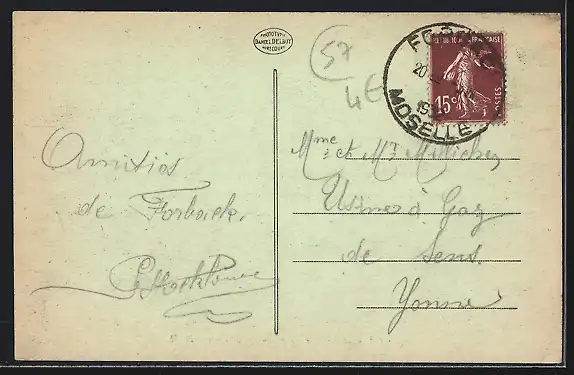 PHOTOTYPIE
DANIEL DELBOY
MIRECOURT
57
4€
RÉPUBLIQUE FRANÇAISE
15c
POSTES
FORBACH
20
MOSELLE
Amitiés
de Forback.
Mme et Mr
Usines à Gaz
de Sens
Yonne